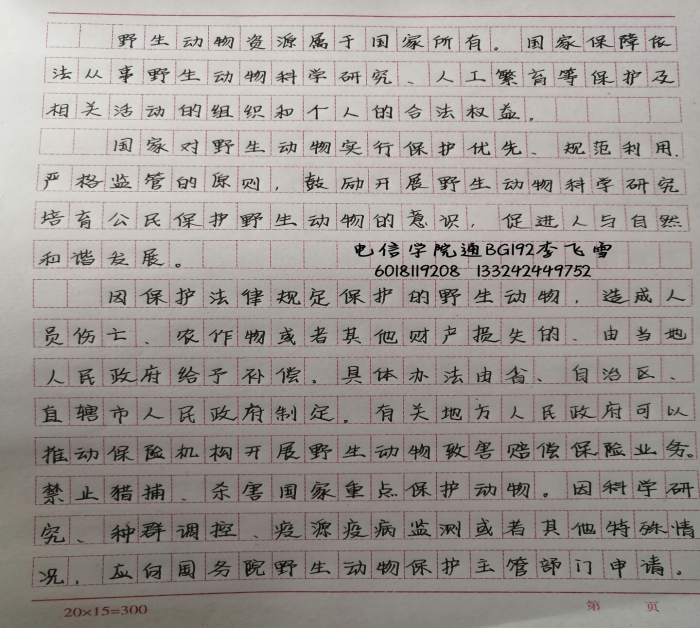 野生动物资源属于国家所有。国家保障依
法从事野生动物科学研究、人工繁育等保护及
相关活动的组织和个人的合法权益。
国家对野生动物实行保护优先、规范利用,
严格监管的原则,鼓励开展野生动物科学研究
培育公民保护野生动物的意识,促进人与自然
和谐发展。
电信学院通BG192李飞雪
6018119208 133242449752
因保护法律规定保护的野生动物,造成人
员伤亡、农作物或者其他财产损失的、由当地
人民政府给予补偿。具体办法由省、自治区、
直辖市人民政府制定。有关地方人民政府可以
推动保险机构开展野生动物致害赔偿保险业务。
禁止猎捕、杀害国家重点保护动物。因科学研
究、种群调控、疫源疫病监测或者其他特殊情
况,应向国务院野生动物保护主管部门申请。
20×15=300 第 页